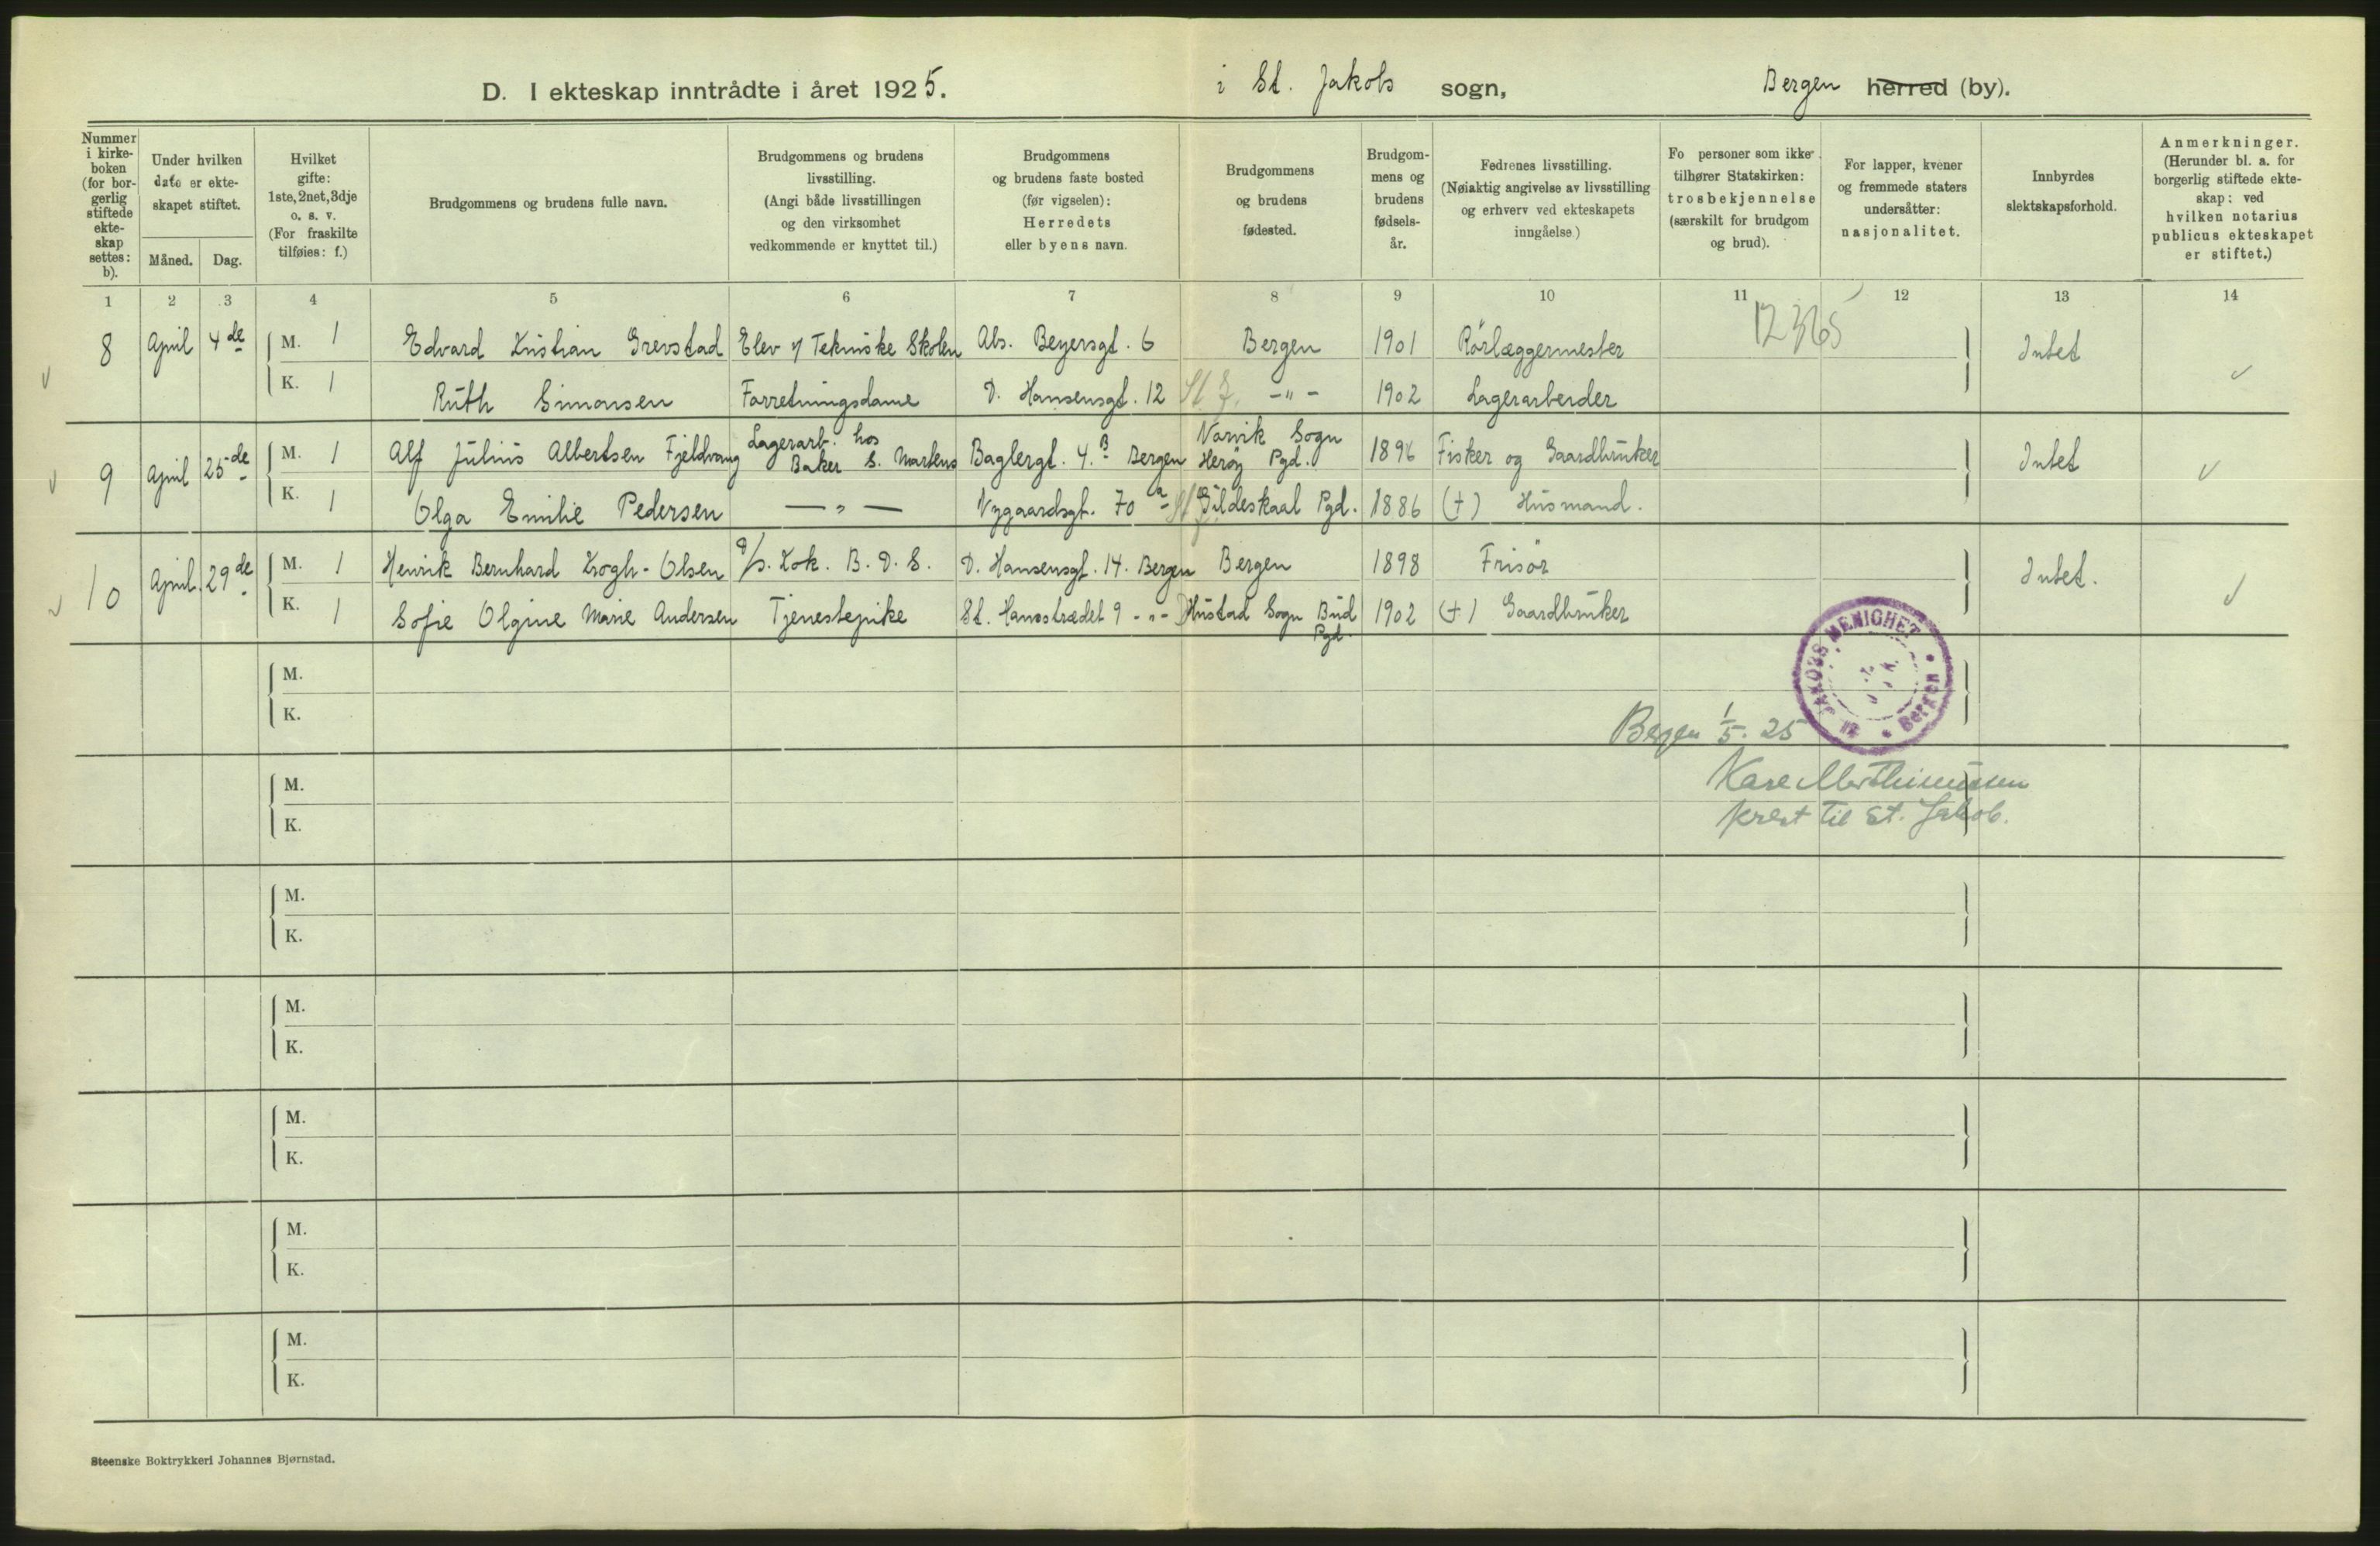 D. I ekteskap inntrådte i året 1925. i St. Jakobs sogn, Bergen herred (by).
Nummer i kirke- boken (for bor- gerlig stiftede ekte- skap settes: b).
Under hvilken dato er ekte- skapet stiftet.
Måned. Dag.
Hvilket gifte: 1ste, 2net, 3dje o. s. v. (For fraskilte tilføies: f.)
Brudgommens og brudens fulle navn.
Brudgommens og brudens livsstilling. (Angi både livsstillingen og den virksomhet vedkommende er knyttet til.)
Brudgommens og brudens faste bosted (før vigselen): Herredets eller byens navn.
Brudgommens og brudens fødested.
Brudgom- mens og brudens fødsels- år.
Fedrenes livsstilling. (Nøiaktig angivelse av livsstilling og erhverv ved ekteskapets inngåelse.)
Fo personer som ikke tilhører Statskirken: trosbekjennelse (særskilt for brudgom og brud).
For lapper, kvener og fremmede staters undersåtter: nasjonalitet.
Innbyrdes slektskapsforhold.
Anmerkninger. (Herunder bl. a. for borgerlig stiftede ekte- skap: ved hvilken notarius publicus ekteskapet er stiftet.)
1 2 3 4 5 6 7 8 9 10 11 12 13 14
12365
8 April 4de M. 1 Edvard Kristian Grevstad Elev v/ Tekniske Skolen Abs. Beyersgt. 6 Bergen 1901 Rörlæggermester Intet
K. 1 Ruth Simonsen Forretningsdame D. Hansensgt. 12 St. J. -"- 1902 Lagerarbeider
9 April 25de M. 1 Alf Julius Albertsen Fjeldvang Lagerarb. hos Baker S. Martens Baglergt. 4.B Bergen Narvik Sogn Herøy Pgd. 1896 Fisker og Gaardbruker Intet
K. 1 Olga Emilie Pedersen —"— Nygaardsgt. 70a St. J. Gildeskaal Pgd. 1886 (+) Husmand.
10 April 29de M. 1 Henrik Bernhard Krogh-Olsen D/S. Kok. B. D. S. D. Hansensgt. 14. Bergen Bergen 1898 Frisör Intet.
K. 1 Sofie Olgine Marie Andersen Tjenestepike St. Hansstrædet 9 -"- Hustad Sogn Bud Pgd. 1902 (+) Gaardbruker
ST. JAKOBS MENIGHET Bergen
M.
K.
Bergen 1/5. 25
M.
K.
Kare Marthinussen
prest til St. Jakob.
M.
K.
M.
K.
M.
K.
M.
K.
M.
K.
Steenske Boktrykkeri Johannes Bjørnstad.